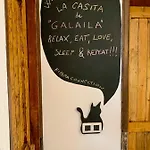 LA CASITA
de
"GALAILA"
RELAX, EAT, LOVE,
SLEEP & REPEAT!!!